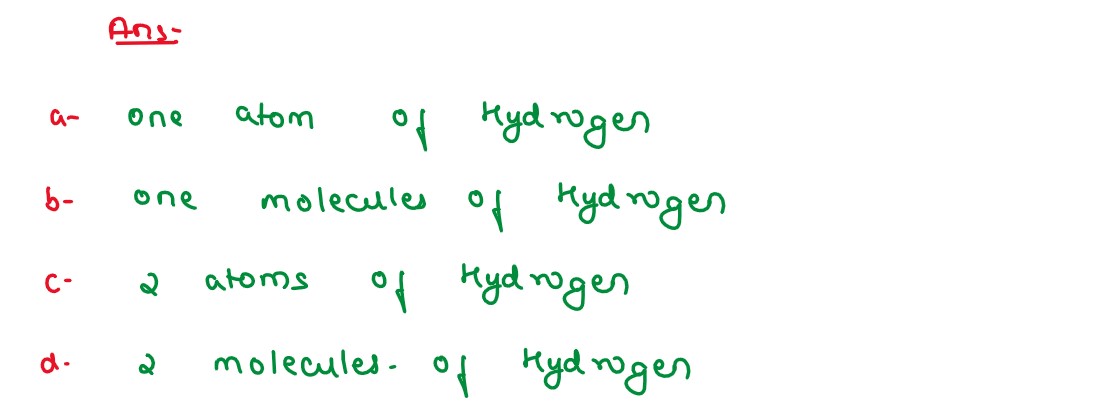 Ans-
a- one atom of Hydrogen
b- one molecules of Hydrogen
c- 2 atoms of Hydrogen
d- 2 molecules. of Hydrogen